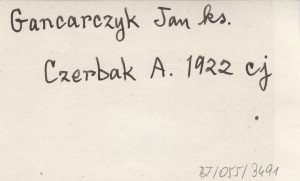 Gancarczyk Jan ks.
Czerbak A. 1922 cj
.
BJ/055/3491